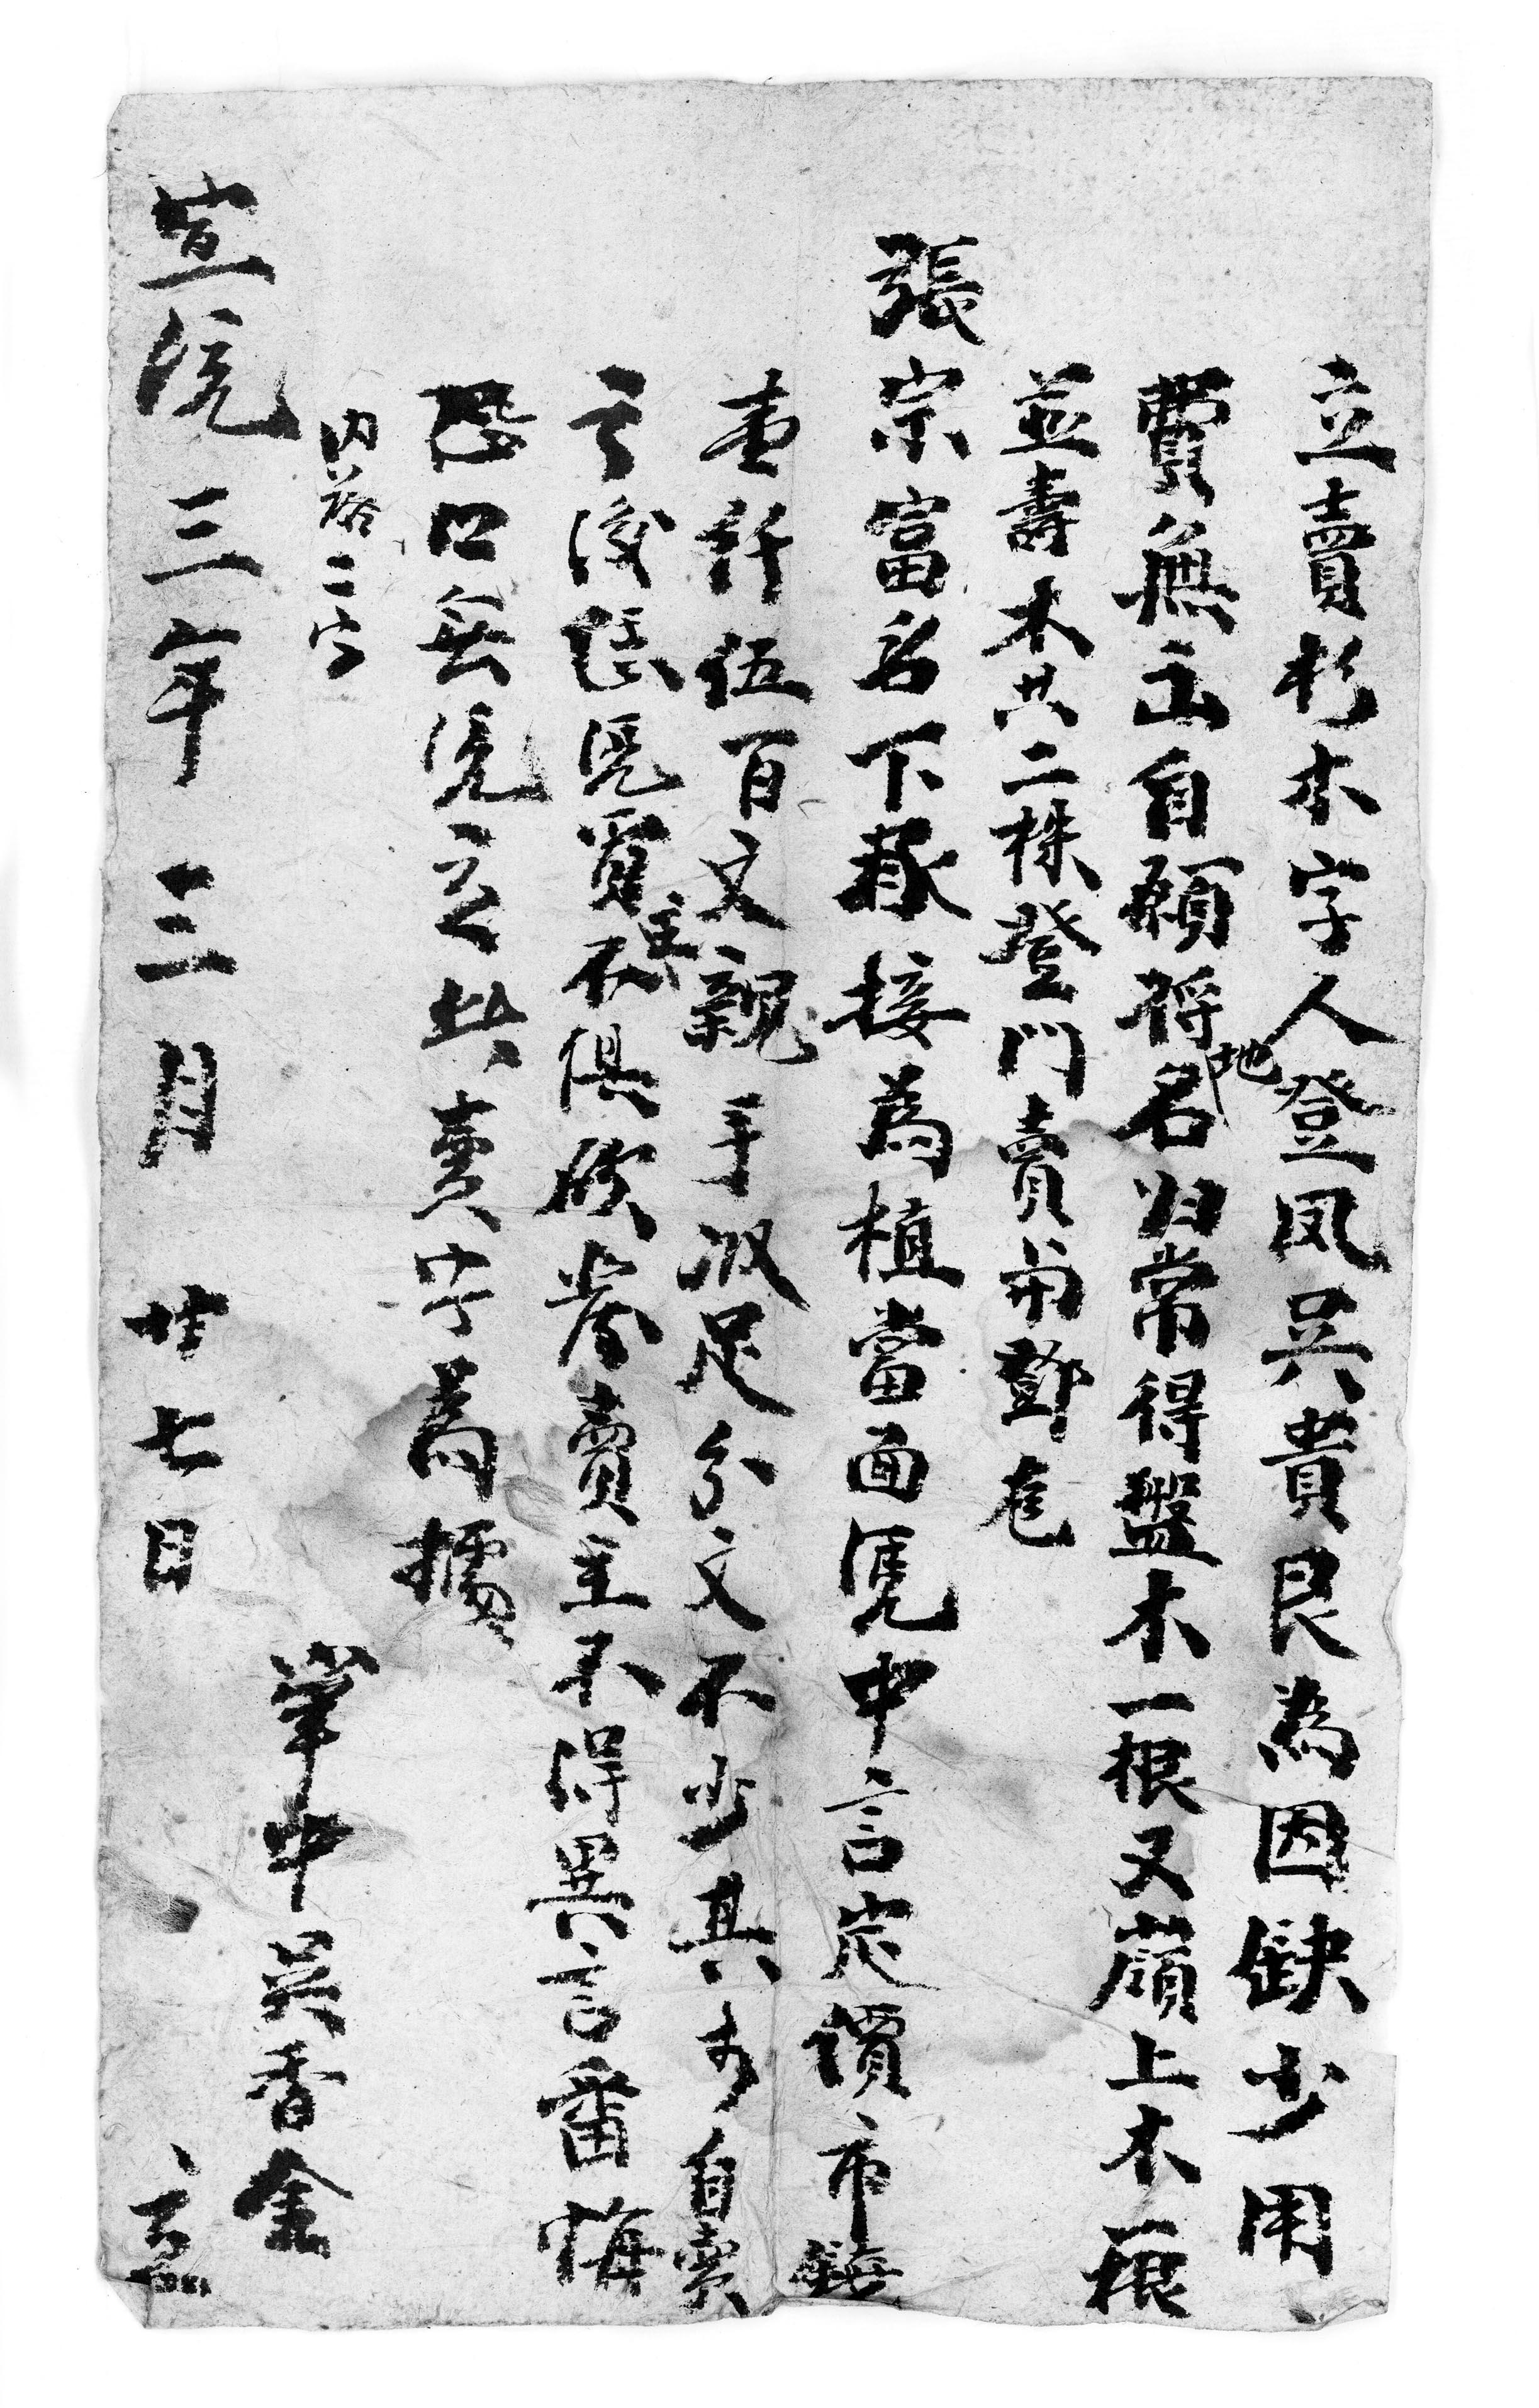 立賣杉木字人登凤吴貴良為因缺少用
費無出自願将地名归常得盤木一根又嶺上木一根
並壽木共二株登門賣与鄧
張宗富名下承接為植當面凭中言定價市錢
壹仟伍百文親手収足分文不少其木自賣
之後任凭買主不俱砍發賣主不得異言番悔
恐口無凭立此賣字為據
内落二字
筆中吴香金
宣統三年三月廿七日立